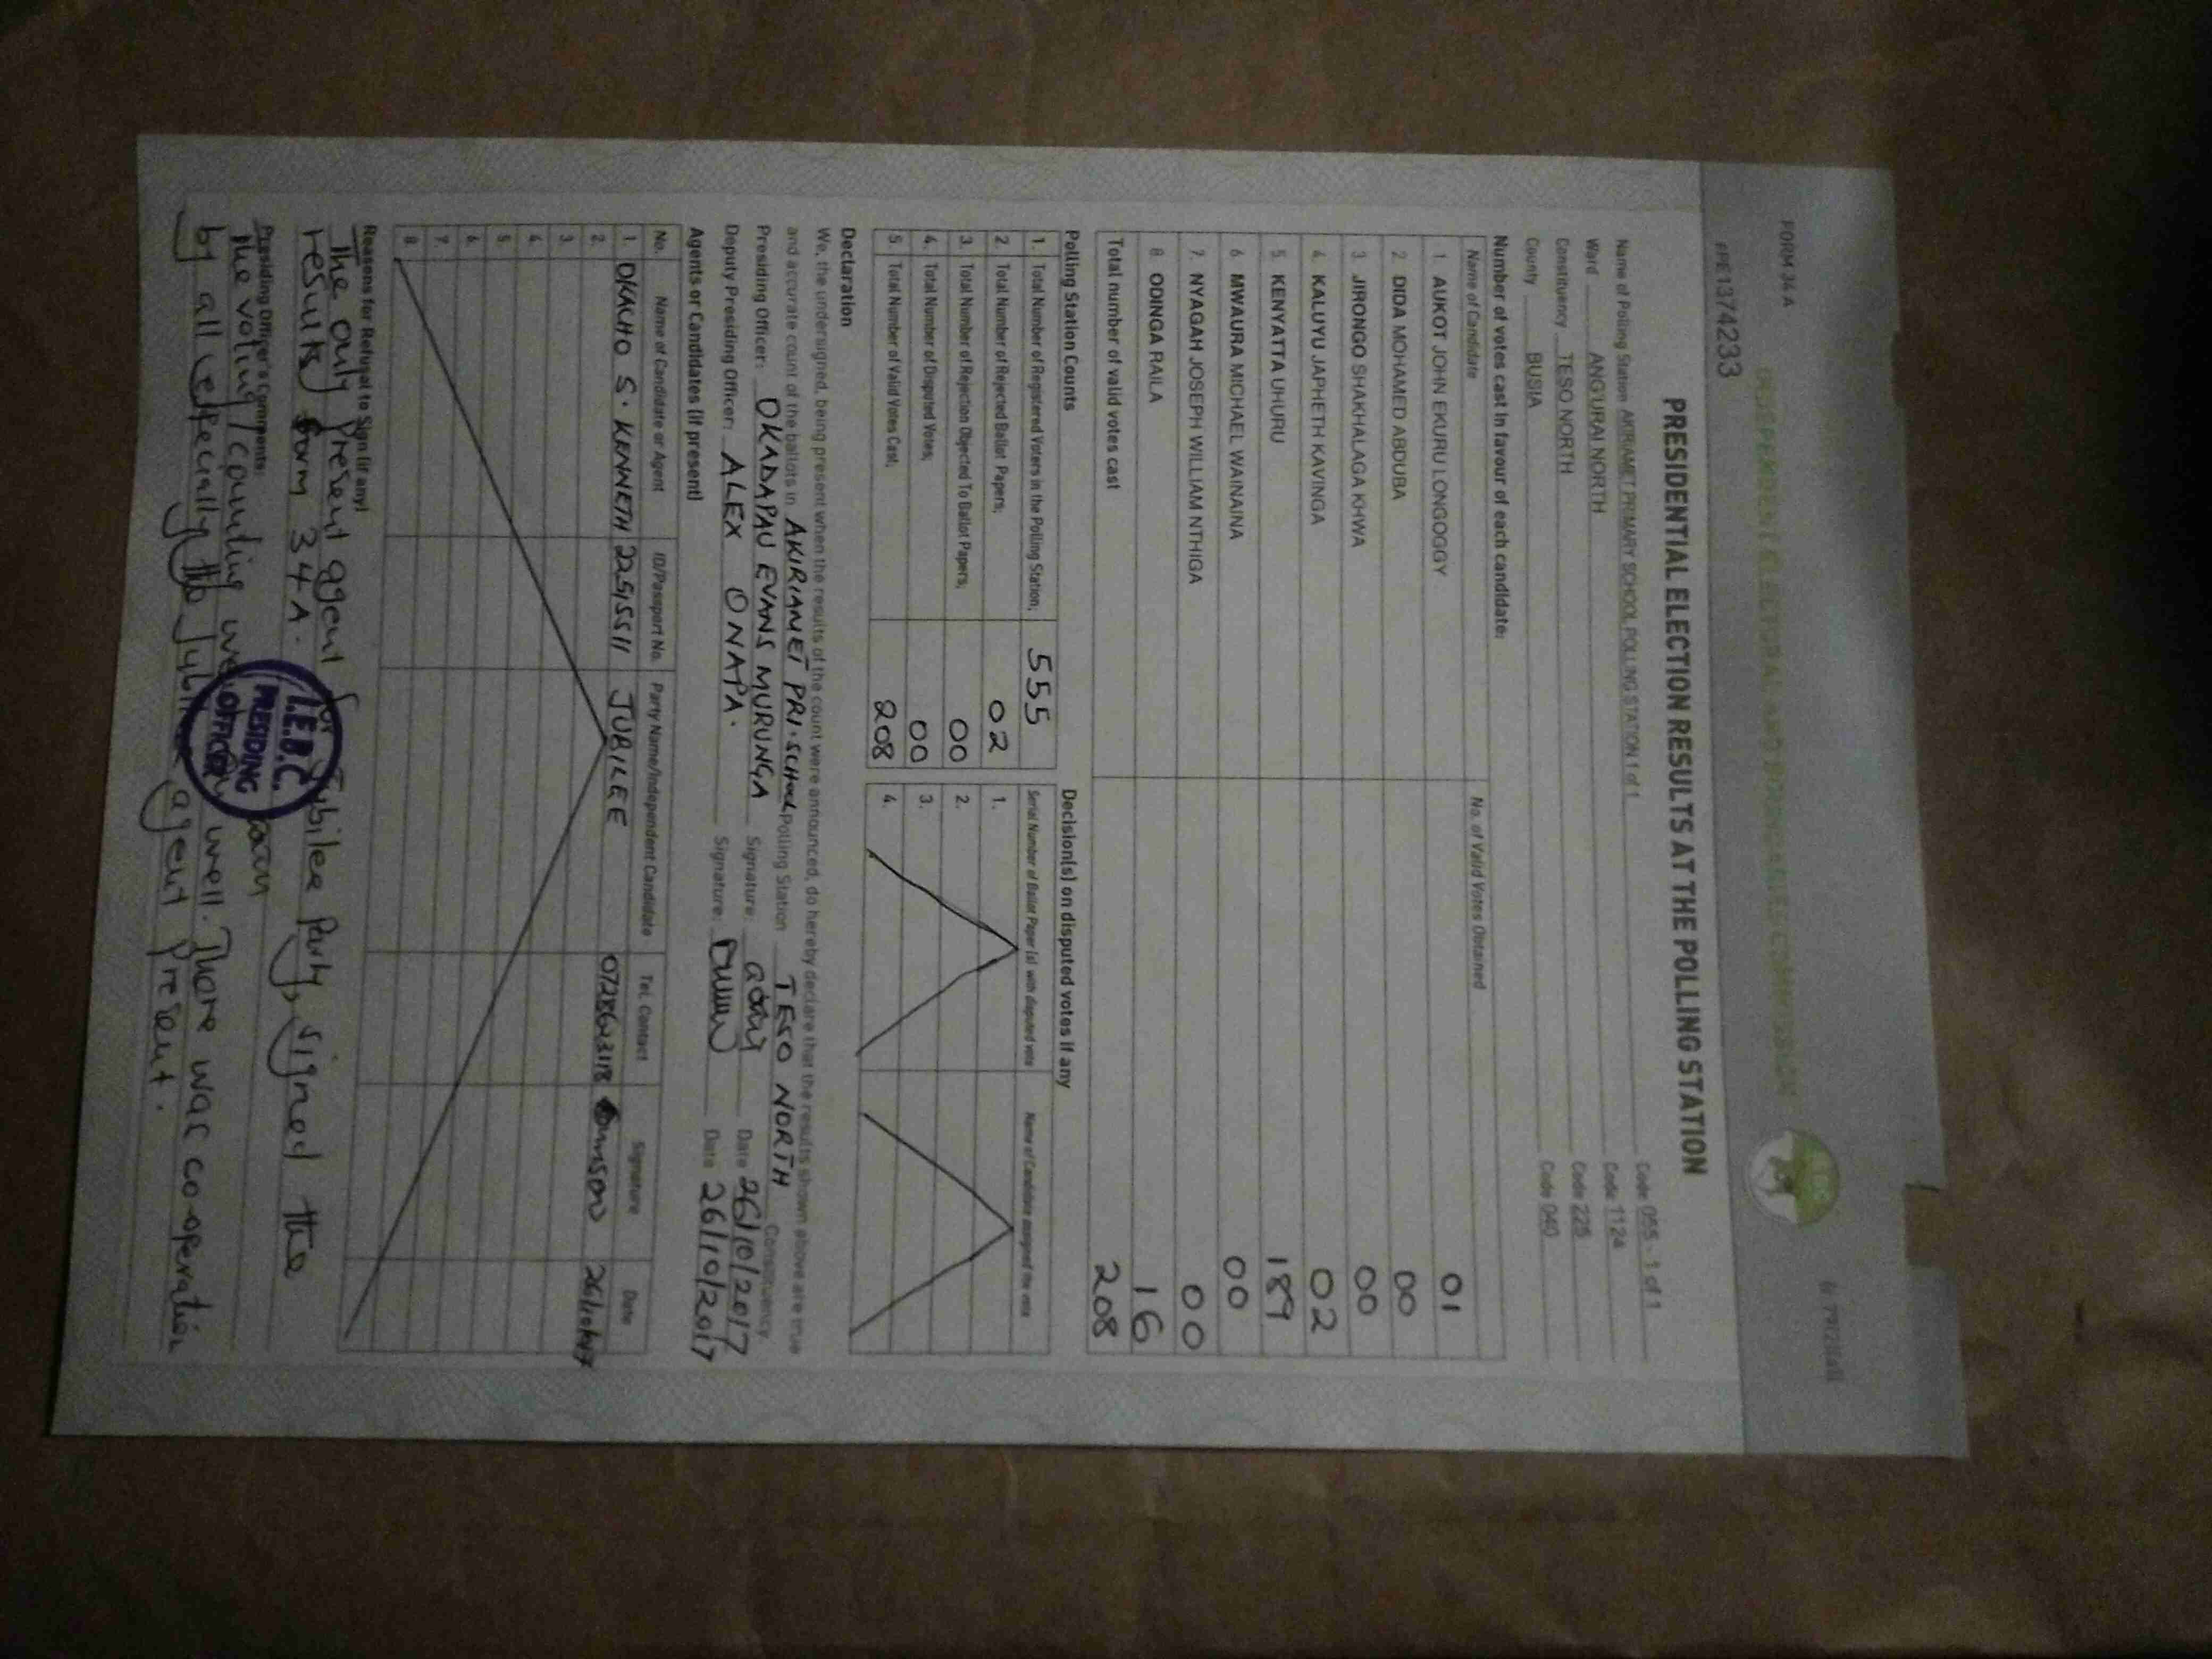 FORM 34 A
PE1374233
INDEPENDENT ELECTORAL AND BOUNDARIES COMMISSION
PRESIDENTIAL ELECTION RESULTS AT THE POLLING STATION
Name of Polling Station AKIRIAMET PRIMARY SCHOOL POLLING STATION 1 of 1 Code 055 - 1 of 1
Ward ANG'URAI NORTH Code 1124
Constituency TESO NORTH Code 225
County BUSIA Code 040
Number of votes cast in favour of each candidate:
Name of Candidate No. of Valid Votes Obtained
1. AUKOT JOHN EKURU LONGOGGY 01
2 DIDA MOHAMED ABDUBA 00
3 JIRONGO SHAKHALAGA KHWA 00
4 KALUYU JAPHETH KAVINGA 02
5 KENYATTA UHURU 189
6 MWAURA MICHAEL WAINAINA 00
7. NYAGAH JOSEPH WILLIAM NTHIGA 00
8 ODINGA RAILA 16
Total number of valid votes cast 208
Polling Station Counts
1. Total Number of Registered Voters in the Polling Station; 555
2. Total Number of Rejected Ballot Papers; 02
3. Total Number of Rejection Objected To Ballot Papers; 00
4. Total Number of Disputed Votes; 00
5. Total Number of Valid Votes Cast; 208
Decision(s) on disputed votes if any
Serial Number of Ballot Paper (s) with disputed vote Name of Candidate assigned the vote
1.
2.
3.
4.
Declaration
We, the undersigned, being present when the results of the count were announced, do hereby declare that the results shown above are true
and accurate count of the ballots in AKIRIAMET PRI. SCHOOL Polling Station TESO NORTH Constituency
Presiding Officer: OKADAPAU EVANS MURUNGA Signature: Date 26/10/2017
Deputy Presiding Officer: ALEX ONAPA. Signature: Date 26/10/2017
Agents or Candidates (if present)
No. Name of Candidate or Agent ID/Passport No. Party Name/Independent Candidate Tel. Contact Signature Date
1. OKACHO S. KENNETH 22515511 JUBILEE 0728623118 26/10/2017
2.
3.
4.
5.
6.
7.
8.
Reasons for Refusal to Sign (if any)
The only present agent for Jubilee Party, signed the
results form 34A.
Presiding Officer's Comments:
The voting/counting well. There was co-operation
by all especially the Jubilee agent present.
I.E.B.C.
PRESIDING
OFFICER